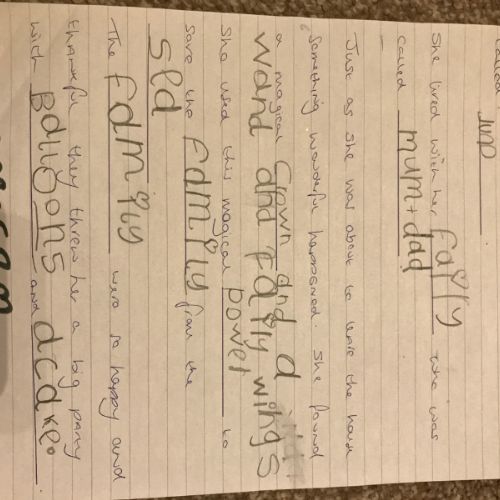 called
She lived with her fairy who was
called mum + dad.
Just as she was about to leave the house
something wonderful happened. She found
a magical Crown and a
wand and fairy wings
She used this magical power to
save the family from the
The family were so happy and
thankful they threw her a big party
with Balloons and acake.